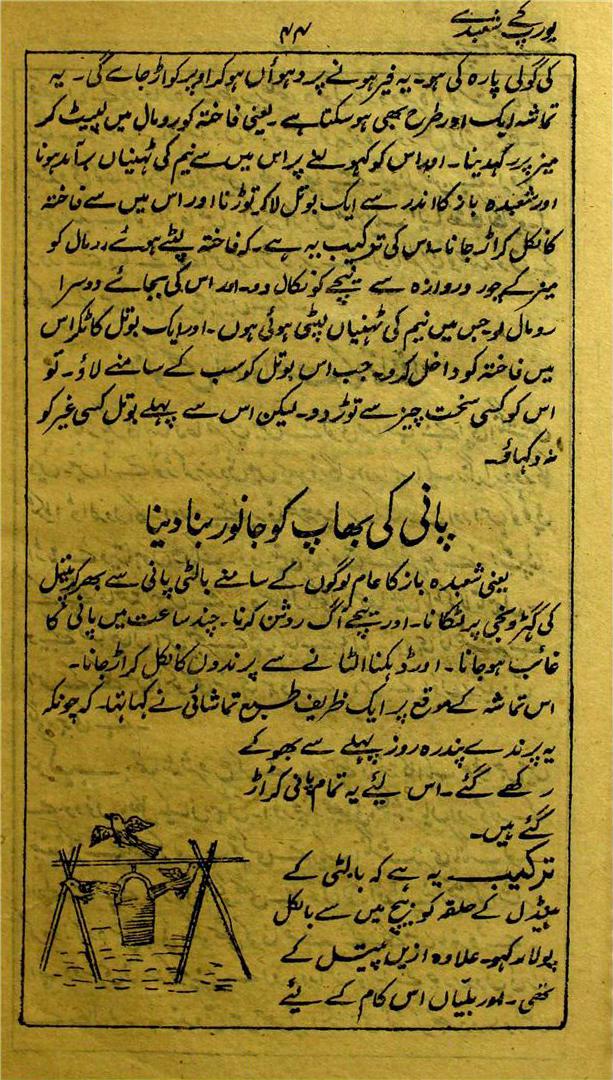 یورپ کے شعبدے
۴۴
کی گولی پارہ کی ہو۔ یہ فیر ہونے پر دہوأں ہو کر اوپر کو اڑ جاے گی۔ یہ
تماشہ ایک اور طرح بھی ہو سکتا ہے۔ یعنی فاختہ کو رومال میں لپیٹ کر
میز پر رکھدینا۔ اور اس کو کہولنے پر اس میں سے نیم کی ٹہنیاں برآمد ہونا
اور شعبدہ باز کا اندر سے ایک بوتل لا کر توڑنا اور اس میں سے فاختہ
کا نکل کر اڑ جانا۔ اس کی ترکیب یہ ہے۔ کہ فاختہ لپٹے ہوئے رومال کو
میز کے چور دروازہ سے نیچے کو نکال دو۔ اور اس کی بجائے دوسرا
رومال لو جس میں نیم کی ٹہنیاں لپٹی ہوئی ہوں۔ اور ایک بوتل کاٹکر اس
میں فاختہ کو داخل کرو۔ جب اس بوتل کو سب کے سامنے لاؤ۔ تو
اس کو کسی سخت چیز سے توڑ دو۔ لیکن اس سے پہلے بوتل کسی غیر کو
نہ دکہاؤ۔
پانی کی بھاپ کو جانور بنا دینا
یعنی شعبدہ باز کا عام لوگوں کے سامنے بالٹی پانی سے بھر کر پیتل
کی گہڑونچی پر لٹکانا۔ اور نیچے آگ روشن کرنا۔ چند ساعت میں پانی کا
غائب ہو جانا۔ اور ڈہکنا اٹھانے سے پرندوں کا نکل کر اڑ جانا۔
اس تماشہ کے موقع پر ایک ظریف طبع تماشائی نے کہا تہا۔ کہ چونکہ
یہ پرندے پندرہ روز پہلے سے بھوکے
رکھے گئے۔ اس لیئے یہ تمام پانی کر اڑ
گئے ہیں۔
ترکیب۔ یہ ہے کہ بالٹی کے
ہینڈل کے حلقہ کو بیچ میں سے بالکل
پولا رکہو۔ علاوہ ازیں پیتل کے
اور بلیاں اس کام کے لیئے